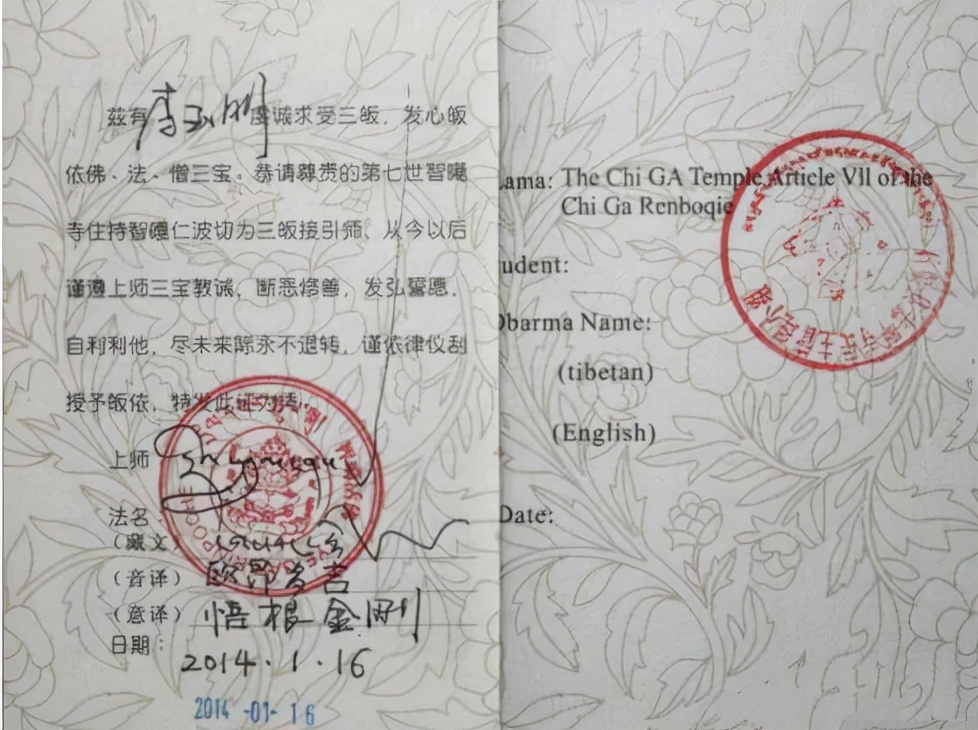 兹有李玉明虔诚求受三皈，发心皈
依佛、法、僧三宝。恭请尊贵的第七世智噶
寺住持智噶仁波切为三皈接引师、从今以后
谨遵上师三宝教诫，断恶修善，发弘誓愿，
自利利他，尽未来际永不退转，谨依律仪刮
授予皈依，特发此证为
上师
法名
（藏文）
（音译）欧昂多吉
（意译）悟根金刚
日期：2014.1.16
2014 -01- 16
ama: The Chi GA Temple Article Vll of the
Chi Ga Renboqie
udent:
Dbarma Name:
(tibetan)
(English)
Date: